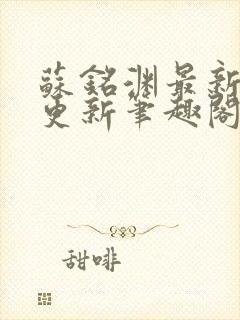 蘇銘淵最新
更新筆趣閣
甜啡